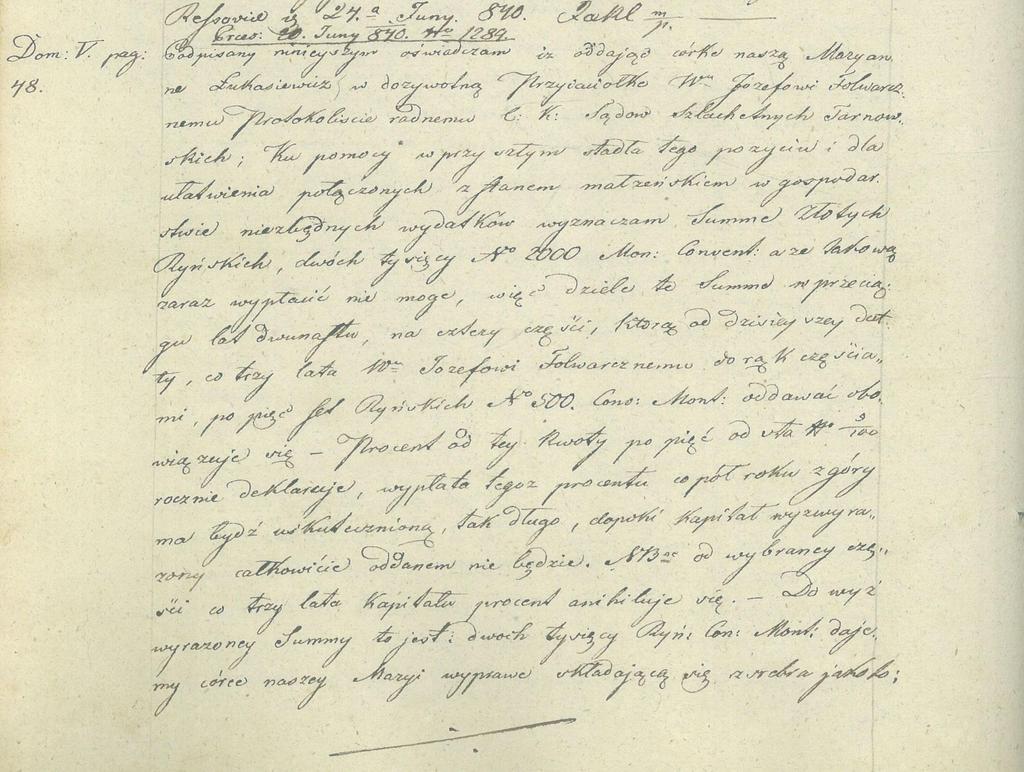 Ressoviae 24.a Juny. 840. Zakl m/p.
Praes: 20. Juny 840. No 1289.
Dom: V. pag: 48.
Podpisany ninieyszym oswiadczam iz oddając córke naszą Maryan,,
ne Łukasiewicz w dozywotną Przyiaciołke Wmu Jozefowi Folwarcz,,
nemu Protokoliscie radnemu C: K: Sądow Szlachetnych Tarnow,,
skich; Ku pomocy w przysztym stadła tego pozyciu i dla
ułatwienia połączonych z stanem matzeńskiem w gospodar,,
stwie niezbędnych wydatków wyznaczam Summe Złotych
Ryńskich, dwóch tysięcy No 2000 Mon: Convent: a ze takową
zaraz wypłacić nie moge, więc dziele te Summe w przecią,,
gu lat dwunastu, na cztery części, ktorą od dzisieyszey dat,,
ty, co trzy lata Wmu Jozefowi Folwarcznemu do rąk częścia,,
mi, po pięć set Ryńskich No 500. Cono: Mont: oddawać obo,,
wiązuje się – Procent od tey kwoty po pięć od sta No 5/100
rocznie deklaruje, wypłata tegoz procentu co pół roku z góry
ma bydź uskutecznioną, tak długo, dopoki Kapitał wyzwyra,,
zony całkowićie oddanem nie będzie. NB od wybraney czę,,
ści co trzy lata Kapitału procent anihiluje się. – Do wyź
wyrazoney Summy to jest: dwoch tysięcy Ryń: Con: Mont: daje,,
my córce naszey Maryi wyprawe składającą się z srebra jakoto: